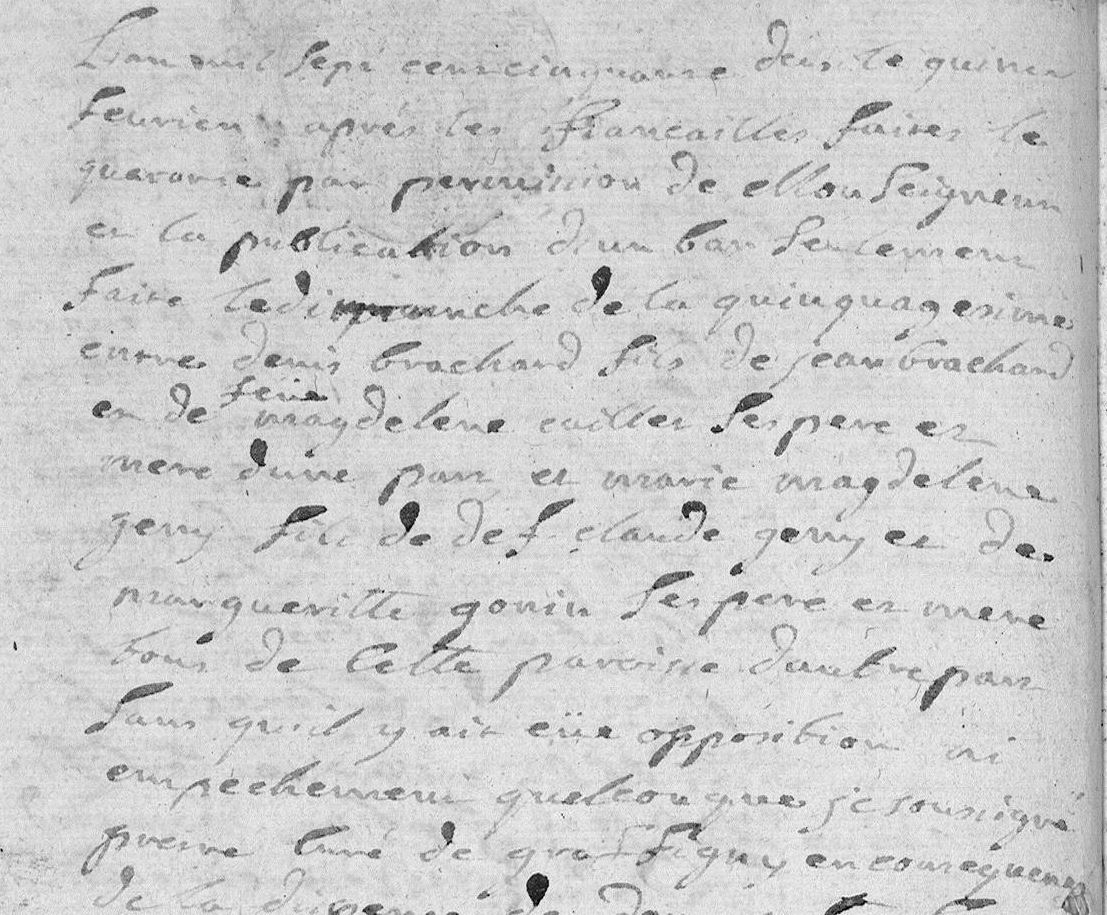 Lan mil sept cent cinquante deux le quinze
feurier apres les fiancailles faites le
quatorze par permission de Mon Seigneur
et la publication d'un ban seulement
faite le dimanche de la quinquagesime
entre denis brachard fils de jean brachard
et de feüe magdelene cailler ses pere et
mere dune part et marie magdelene
geny fille de def. claude geny et de
margueritte gonin ses pere et mere
tous de cette paroisse dautre part
sans qu'il y ait eüe opposition ni
empechement quelconque je soussigné
prestre curé de graffigny en consequence
de la dispense de